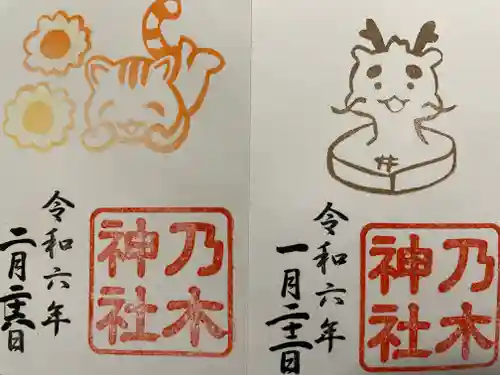 乃木
神社
令和六年
二月二十六日
井
乃木
神社
令和六年
一月二十二日